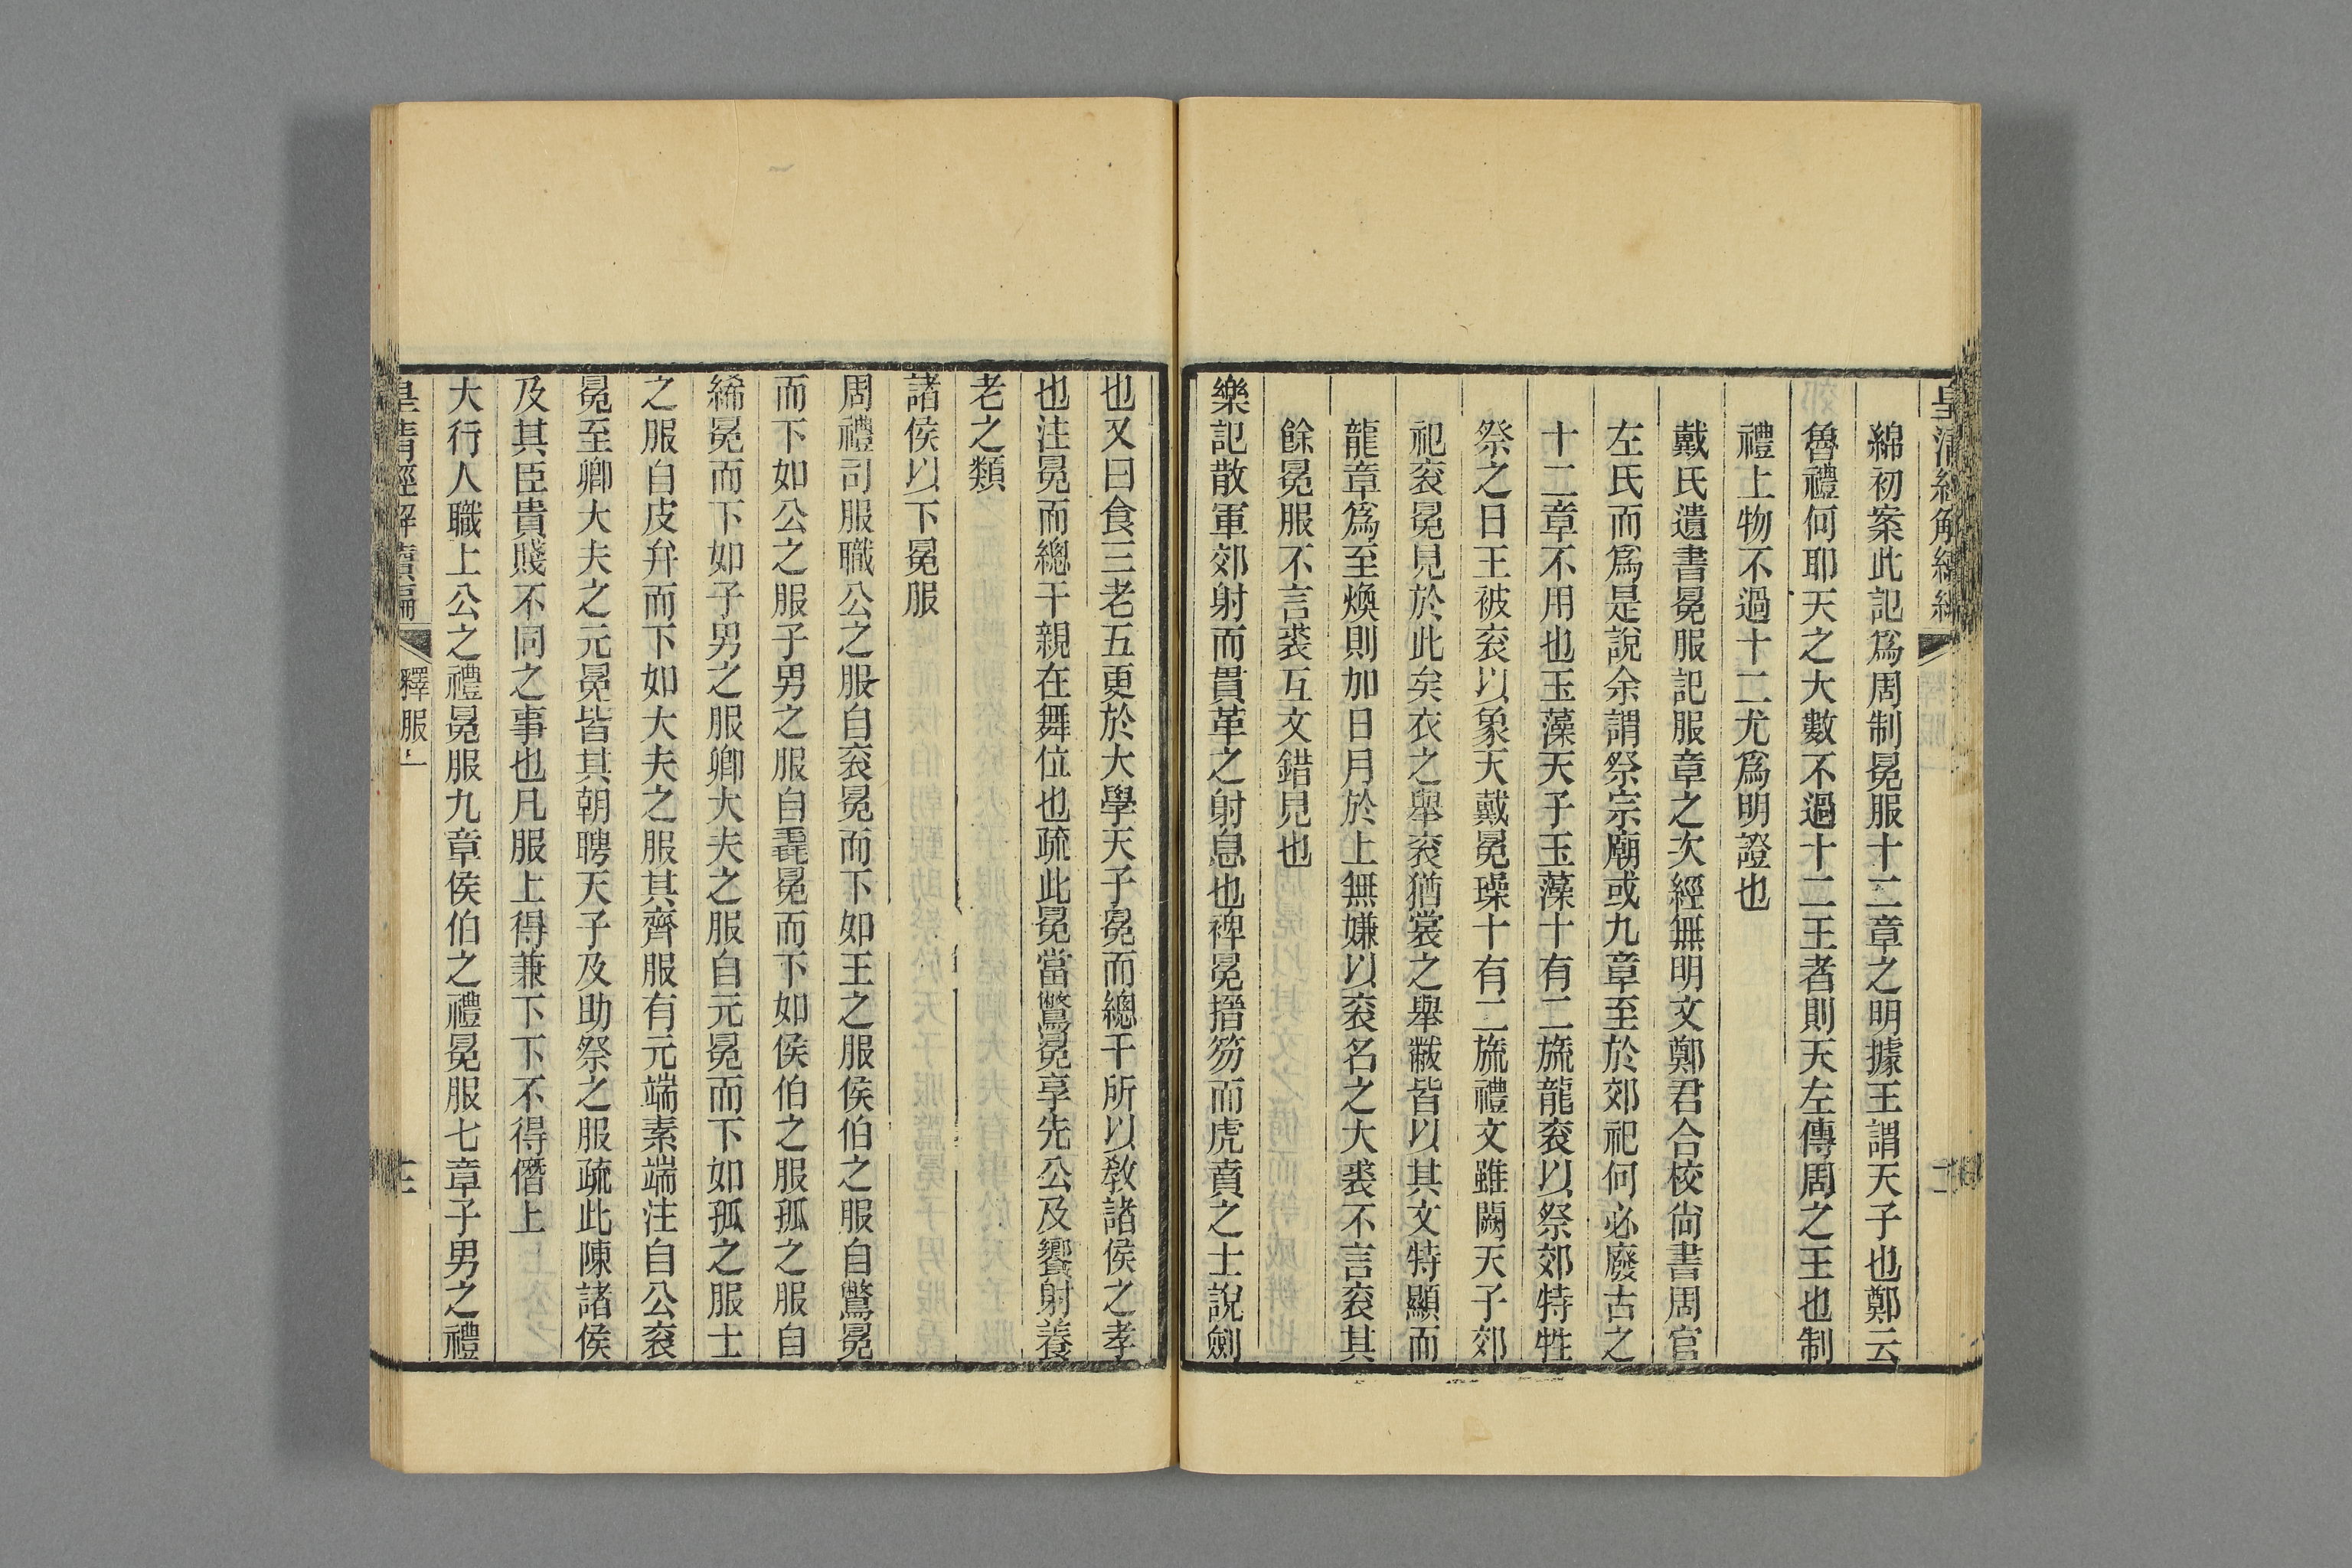 綿初案此記爲周制冕服十二章之明據王謂天子也鄭云
魯禮何耶天之大數不過十二王者則天左傳周之王也制
禮上物不過十二尤爲明證也
戴氏遺書冕服記服章之次經無明文鄭君合校尙書周官
左氏而爲是說余謂祭宗廟或九章至於郊祀何必廢古之
十二章不用也玉藻天子玉藻十有二旒龍袞以祭郊特牲
祭之日王被袞以象天戴冕璪十有二旒禮文雖闕天子郊
祀袞冕見於此矣衣之舉袞猶裳之舉黻皆以其文特顯而
龍章爲至煥則加日月於上無嫌以袞名之大裘不言袞其
餘冕服不言裘互文錯見也
樂記散軍郊射而貫革之射息也裨冕搢笏而虎賁之士說劍
也又曰食三老五更於大學天子冕而總干所以敎諸侯之孝
也注冕而總干親在舞位也疏此冕當鷩冕享先公及饗射養
老之類
諸侯以下冕服
周禮司服職公之服自袞冕而下如王之服侯伯之服自鷩冕
而下如公之服子男之服自毳冕而下如侯伯之服孤之服自
絺冕而下如子男之服卿大夫之服自元冕而下如孤之服士
之服自皮弁而下如大夫之服其齊服有元端素端注自公袞
冕至卿大夫之元冕皆其朝聘天子及助祭之服疏此陳諸侯
及其臣貴賤不同之事也凡服上得兼下下不得僭上
大行人職上公之禮冕服九章侯伯之禮冕服七章子男之禮
皇淸經解續編
釋服上